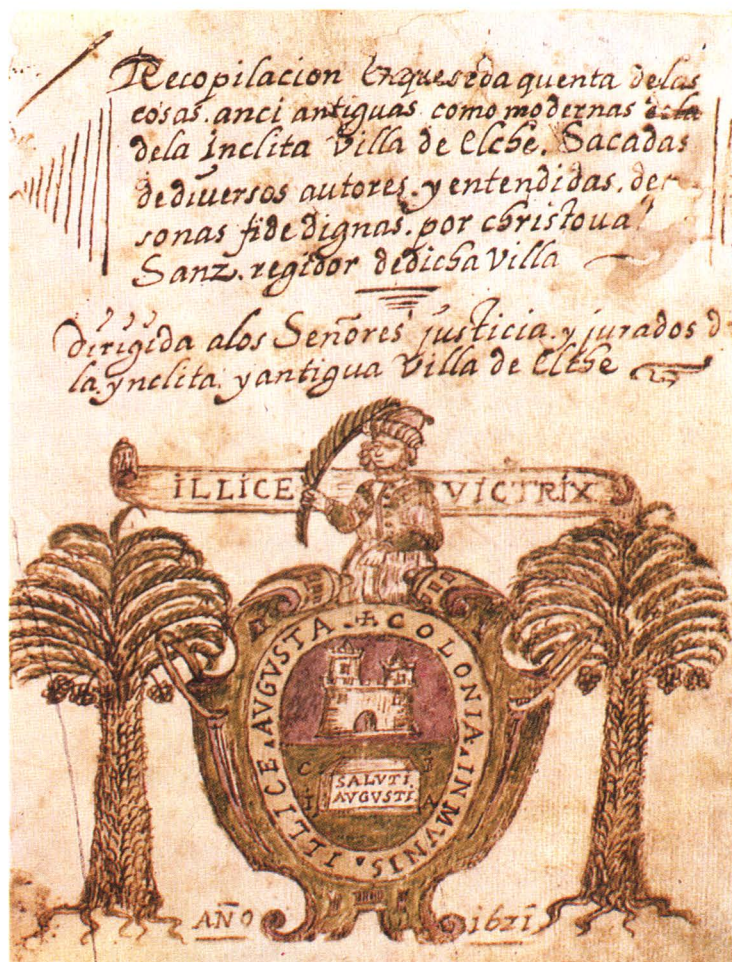 Recopilacion Enqueseda quenta delas
cosas. anci antiguas como modernas dela
dela Inclita Villa de Elche. Sacadas
dediuersos autores. y entendidas. de
sonas fidedignas. por christoual
Sanz. regidor dedicha villa
dirigida alos Señores justicia. y jurados d
la. ynclita. y antigua Villa de Elche
ILLICE VICTRIX
ILLICE. AVGVSTA. COLONIA. INMVNIS.
C I
I A
SALVTI.
AVGVSTI.
AÑO 1621